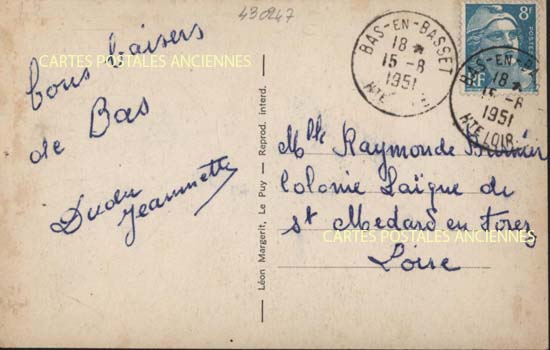 430247
bons baisers
CARTES POSTALES ANCIENNES
de Bas
Jeannette
Léon Margerit, Le Puy — Reprod. interd.
BAS-EN-BASSET
18 *
15-8
1951
HTE LOIRE
8F
POSTES
RF
BAS-EN-BA
18 *
15-8
1951
HTE LOIR
Mlle Raymonde
Colonie Laïque de
St Medard en Forez
CARTES POSTALES ANCIENNES
Loire